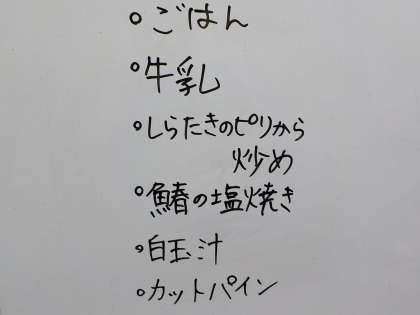 ○ごはん
○牛乳
○しらたきのピリから
炒め
○鰆の塩焼き
○白玉汁
○カットパイン